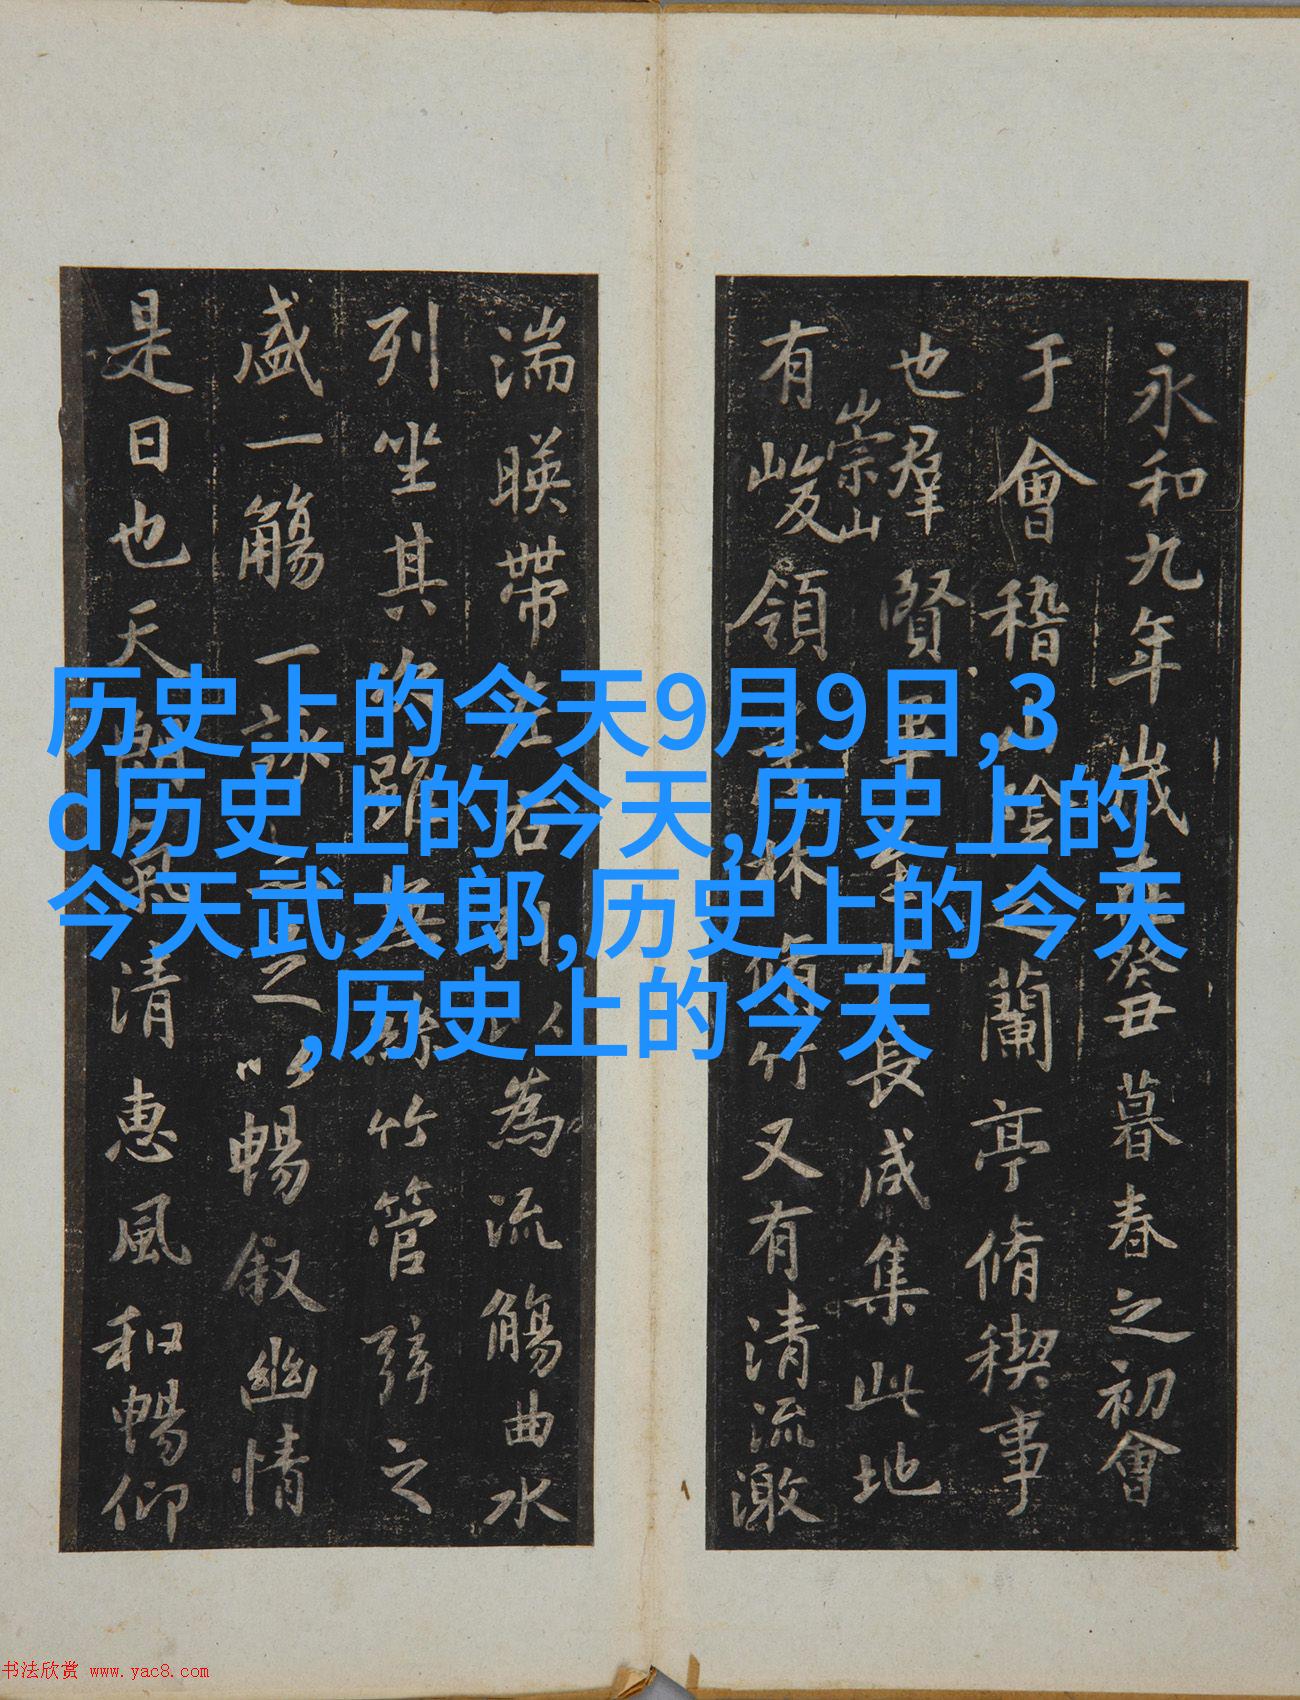 历史上的今天9月9日,3
d历史上的今天,历史上的
今天武大郎,历史上的今天
,历史上的今天
永和九年歲在癸丑暮春之初會
于會稽山陰之蘭亭脩稧事
也羣賢畢至少長咸集此地
崇山
有峻領茂林脩竹又有清流激
湍暎帶左右引以為流觴曲水
列坐其次雖無絲竹管弦之
盛一觴一詠亦足以暢叙幽情
是日也天朗氣清惠風和暢仰
书法欣赏 www.yac8.com